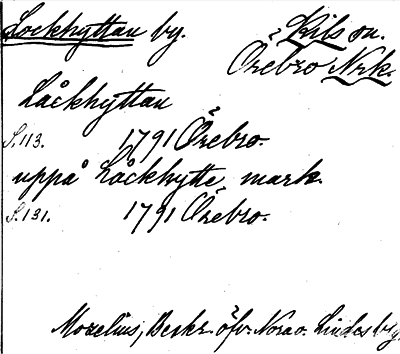 Lockhyttan by. Kils sn.
Örebro Nrk.
Låckhyttan
S. 113. 1791 Örebro.
uppå Låckhytte mark.
S. 131. 1791 Örebro.
Mozelius, Beskr. öfv. Nora o. Lindes bg